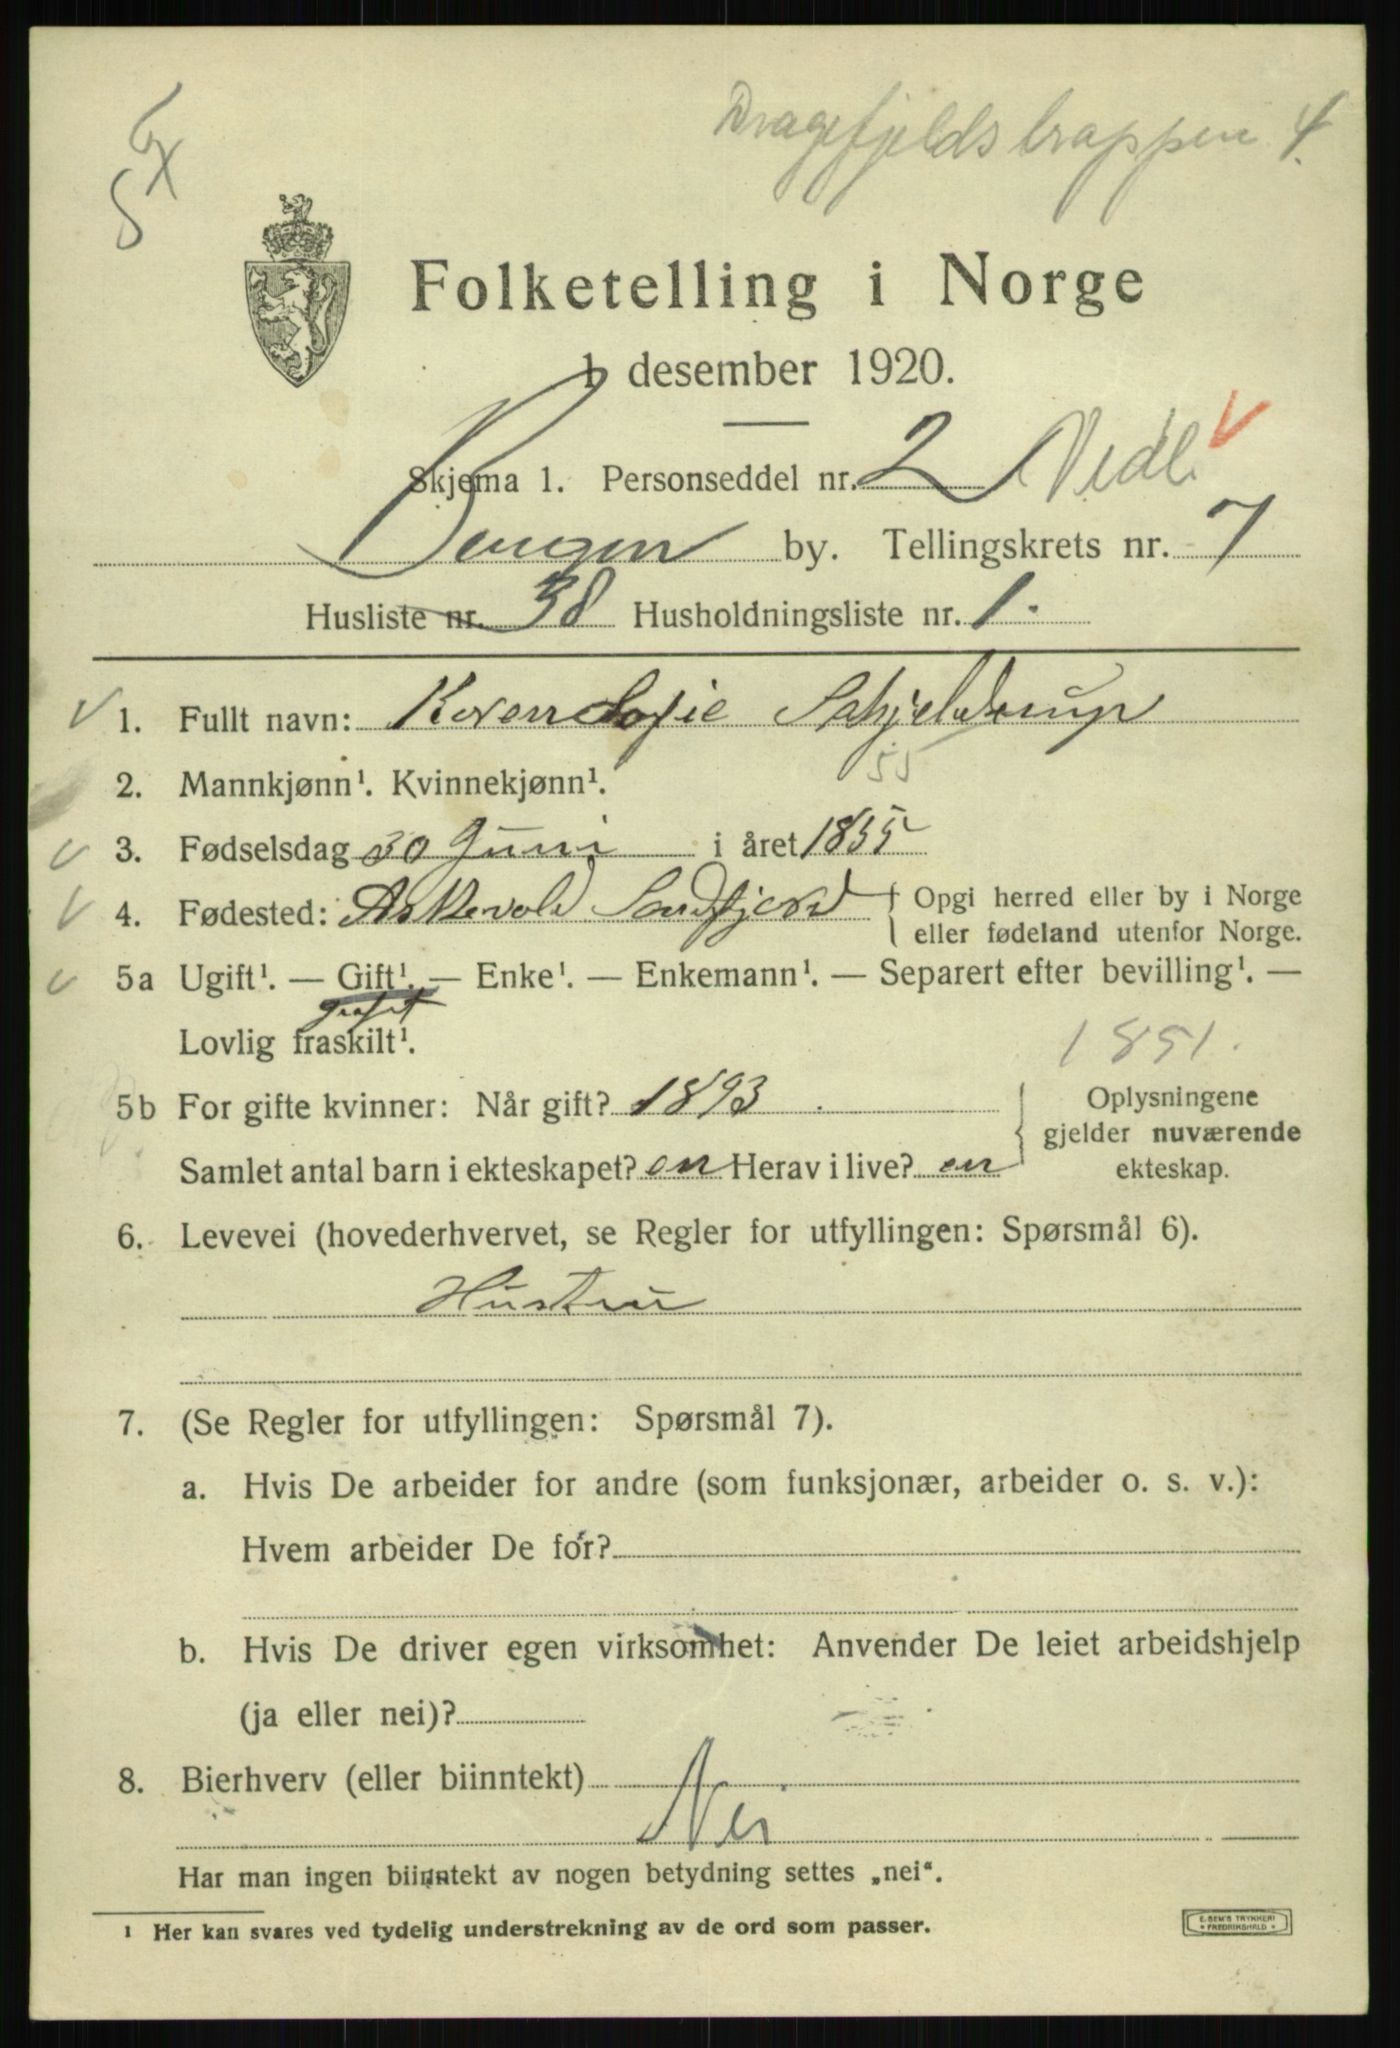 Dragefjeldstrappen 4.
Folketelling i Norge
1 desember 1920.
Skjema 1. Personseddel nr. 2 Vedl.
Bergen by. Tellingskrets nr. 7
Husliste nr. 38 Husholdningsliste nr. 1.
1. Fullt navn: Karen Sofie Schjelderup
2. Mannkjønn¹. Kvinnekjønn¹. 55
3. Fødselsdag 30 Juni i året 1855
4. Fødested: Askevold Søndfjord { Opgi herred eller by i Norge
eller fødeland utenfor Norge.
5a Ugift¹. — Gift¹. — Enke¹. — Enkemann¹. — Separert efter bevilling¹. —
Lovlig fraskilt¹.
1891.
5b For gifte kvinner: Når gift? 1893. Oplysningene
gjelder nuværende
Samlet antal barn i ekteskapet? en Herav i live? en ekteskap.
6. Levevei (hovederhvervet, se Regler for utfyllingen: Spørsmål 6).
Hustru
7. (Se Regler for utfyllingen: Spørsmål 7).
a. Hvis De arbeider for andre (som funksjonær, arbeider o. s. v.):
Hvem arbeider De for?
b. Hvis De driver egen virksomhet: Anvender De leiet arbeidshjelp
(ja eller nei)?
8. Bierhverv (eller biinntekt)
Nei
Har man ingen biinntekt av nogen betydning settes „nei“.
¹ Her kan svares ved tydelig understrekning av de ord som passer.
E. SEM'S TRYKKERI
FREDRIKSHALD